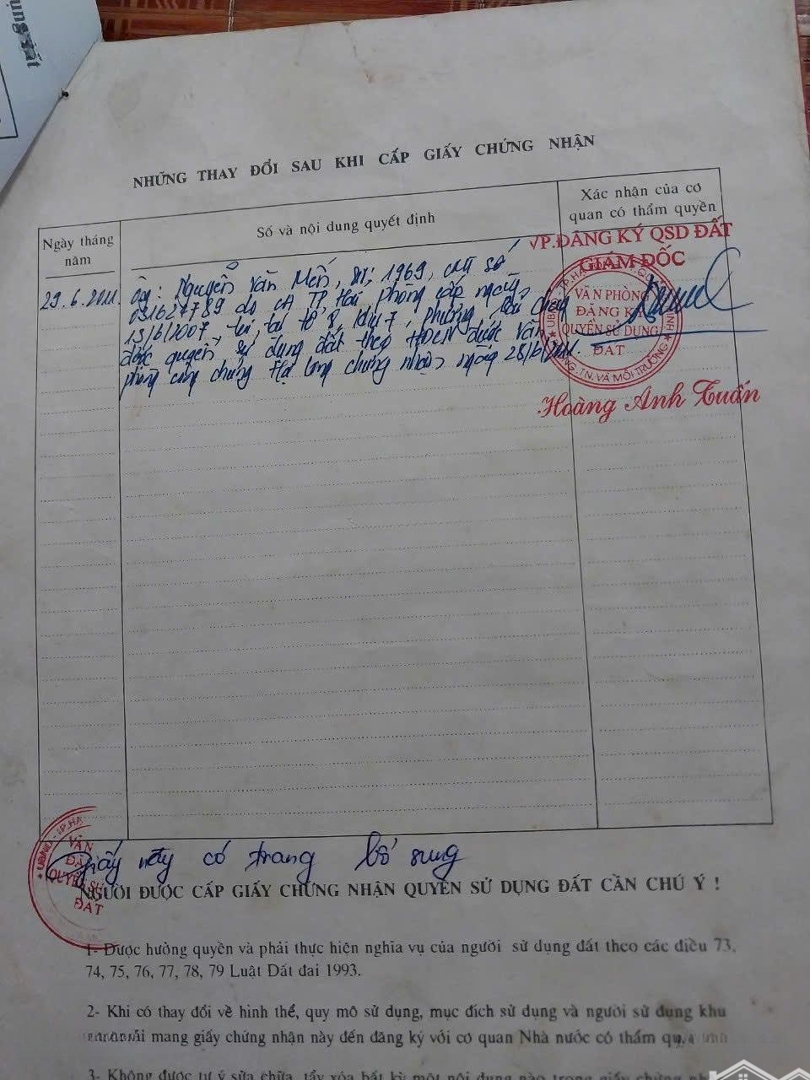 NHỮNG THAY ĐỔI SAU KHI CẤP GIẤY CHỨNG NHẬN
Ngày tháng
năm
Số và nội dung quyết định
Xác nhận của cơ
quan có thẩm quyền
VP.ĐĂNG KÝ QSD ĐẤT
GIÁM ĐỐC
29.6.2011.
Ông: Nguyễn Văn Mến, sn: 1969, cmt số
031627789 do CA TP Hải phòng cấp ngày
13/6/2007, tại tổ 8, khu 7, phường Bãi Cháy
được quyền sử dụng đất theo HĐCN được Văn
phòng công chứng Hạ Long chứng nhận ngày 28/6/2011.
VĂN PHÒNG
ĐĂNG KÝ
QUYỀN SỬ DỤNG
ĐẤT
TN.VÀ MÔI TRƯỜNG
Hoàng Anh Tuấn
Giấy này có trang bổ sung
VĂN
QUYỀN SỬ
ĐẤT
NGƯỜI ĐƯỢC CẤP GIẤY CHỨNG NHẬN QUYỀN SỬ DỤNG ĐẤT CẦN CHÚ Ý !
1- Được hưởng quyền và phải thực hiện nghĩa vụ của người sử dụng đất theo các điều 73,
74, 75, 76, 77, 78, 79 Luật Đất đai 1993.
2- Khi có thay đổi về hình thể, quy mô sử dụng, mục đích sử dụng và người sử dụng khu
phải mang giấy chứng nhận này đến đăng ký với cơ quan Nhà nước có thẩm
3- Không được tự ý sửa chữa, tẩy xóa bất kỳ một nội dung nào trong giấy chứng